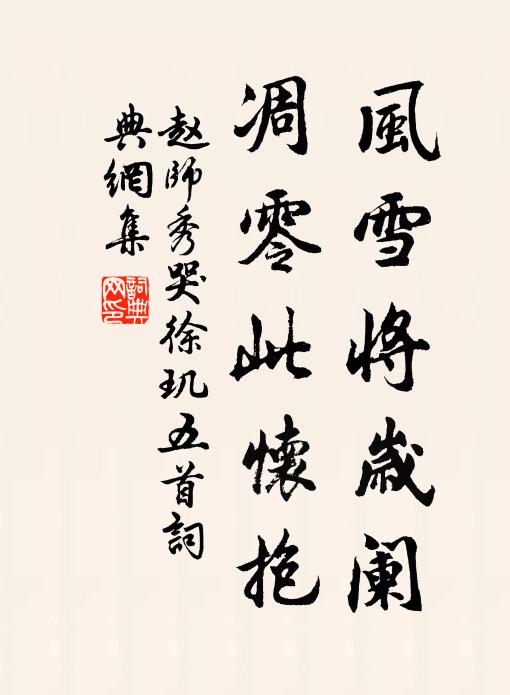 風雪将歲阑
凋零此懷抱
赵師秀哭徐玑五首詞
典網集
詞典网印